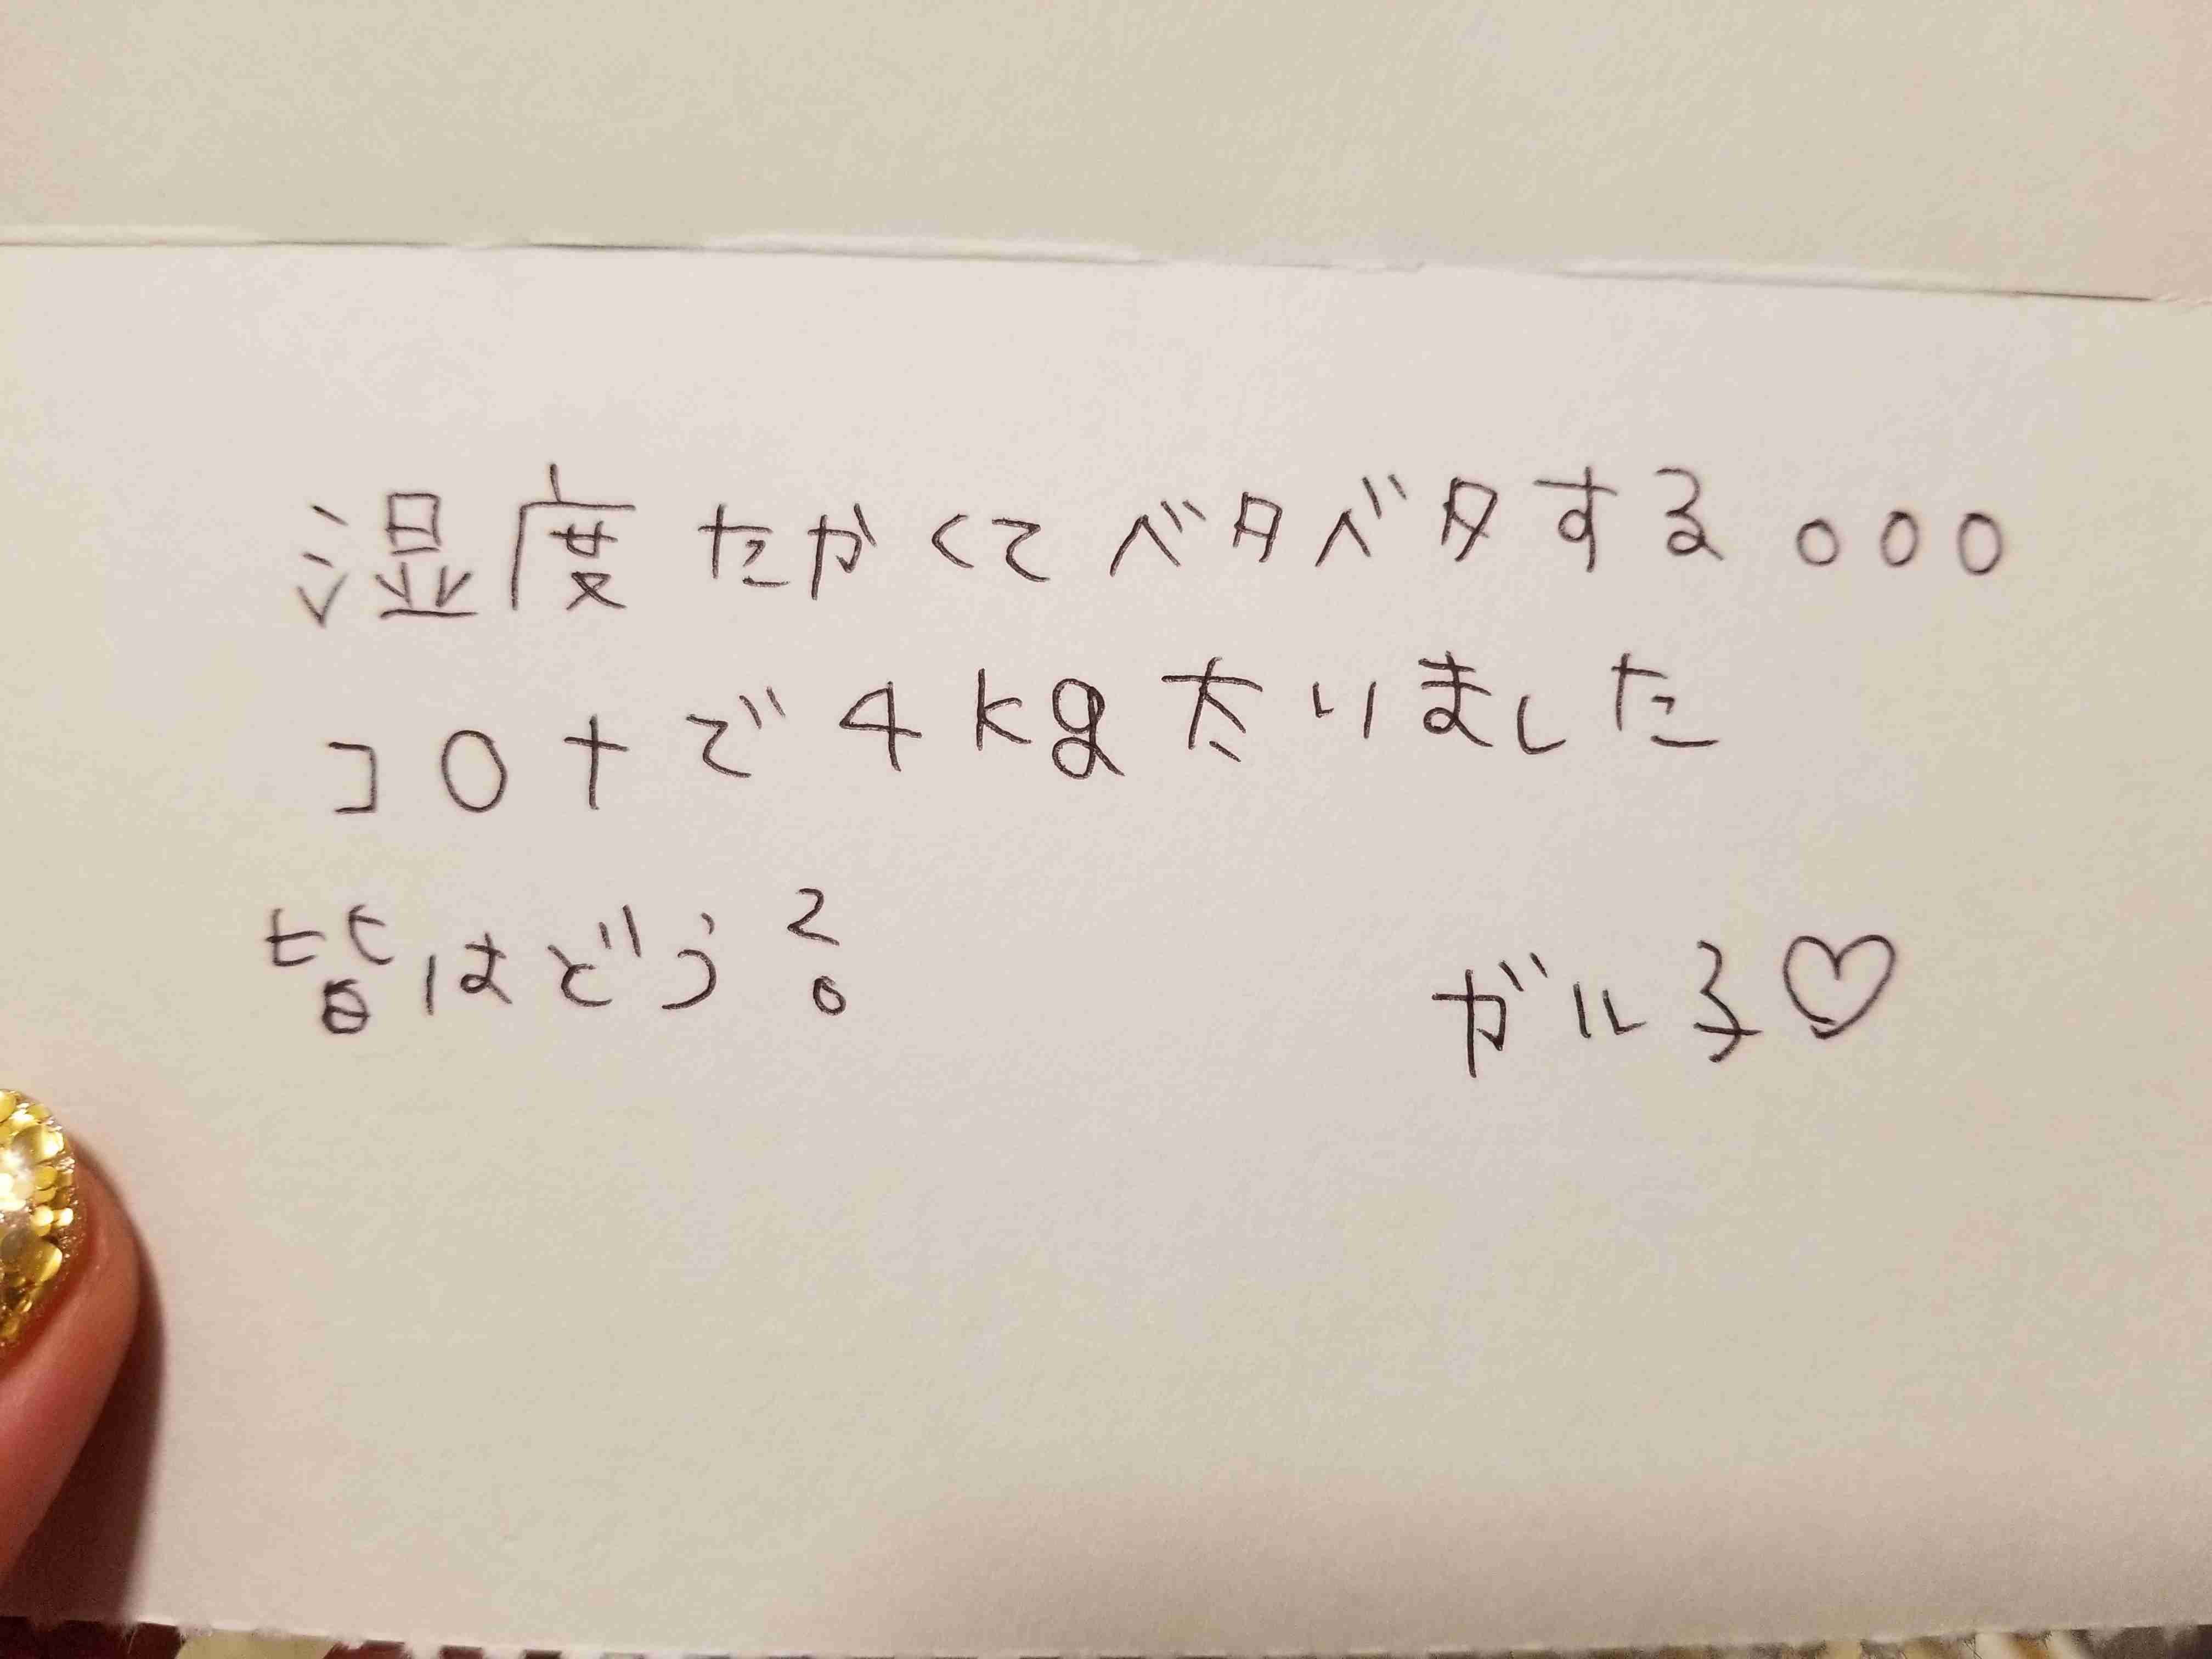 湿度たかくてベタベタする。。。
コロナで4kg太りました
皆はどう?
ガル子♡